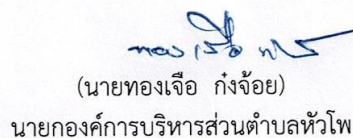 (นายทองเจือ ก๋งจ้อย)
นายกองค์การบริหารส่วนตำบลหัวโพ